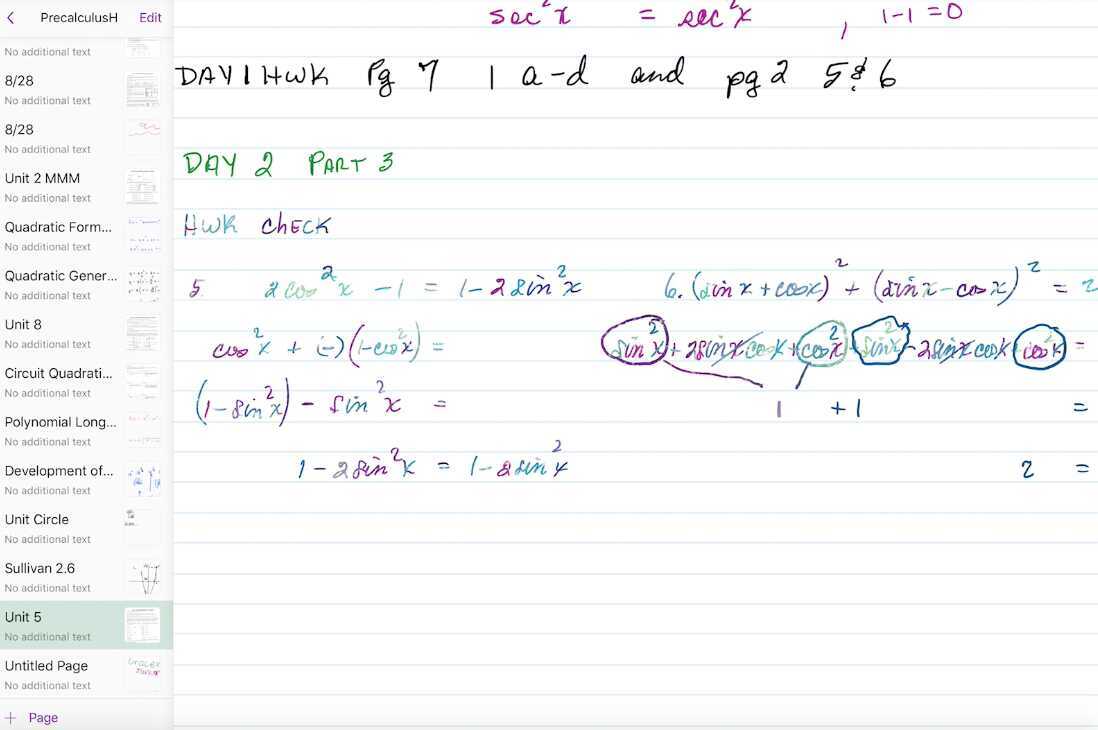 PrecalculusH
Edit
No additional text
8/28
No additional text
8/28
No additional text
Unit 2 MMM
No additional text
Quadratic Form...
No additional text
Quadratic Gener...
No additional text
Unit 8
No additional text
Circuit Quadrati...
No additional text
Polynomial Long...
No additional text
Development of...
No additional text
Unit Circle
No additional text
Sullivan 2.6
No additional text
Unit 5
No additional text
Untitled Page
No additional text
+ Page
sec²x = sec²x , 1-1=0
DAY 1 HWK Pg 7 1 a-d and pg 2 5 & 6
DAY 2 PART 3
HWK ChECK
5. 2cos²x - 1 = 1-2sin²x
cos²x + (-)(1-cos²x) =
(1-sin²x) - sin²x =
1-2sin²x = 1-2sin²x
6. (sinx+cosx)² + (sinx-cosx)² = 2
sin²x + 2sinxcosx + cos²x + sin²x - 2sinxcosx + cos²x =
1 +1 =
2 =